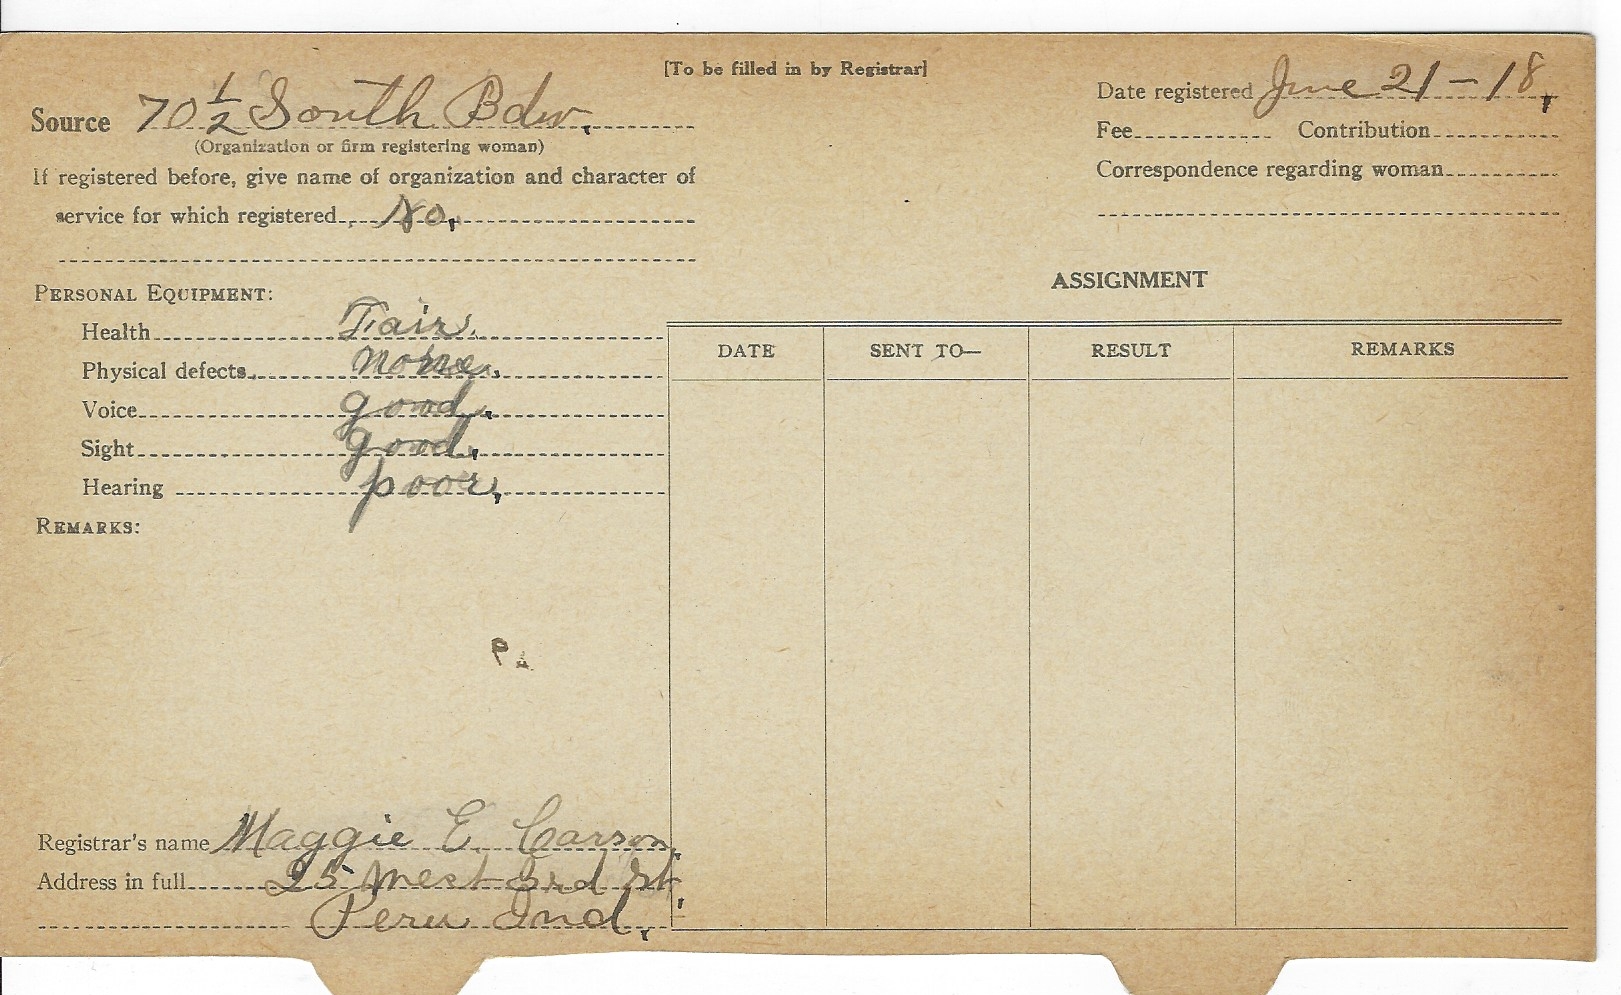 [To be filled in by Registrar]
Source 70½ South Bdw.
(Organization or firm registering woman)
If registered before, give name of organization and character of
service for which registered No.
Date registered June 21-18,
Fee Contribution
Correspondence regarding woman
PERSONAL EQUIPMENT:
Health Fair.
Physical defects none.
Voice good.
Sight good.
Hearing poor.
REMARKS:
ASSIGNMENT
DATE SENT TO— RESULT REMARKS
Registrar's name Maggie E. Carson.
Address in full 25 West 3rd St.
Peru Ind.